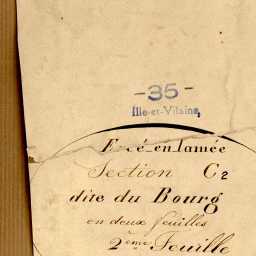 -35-
Ille-et-Vilaine,
Ercé-en-Lamée
Section C2
dite du Bourg
en deux feuilles
2ème Feuille